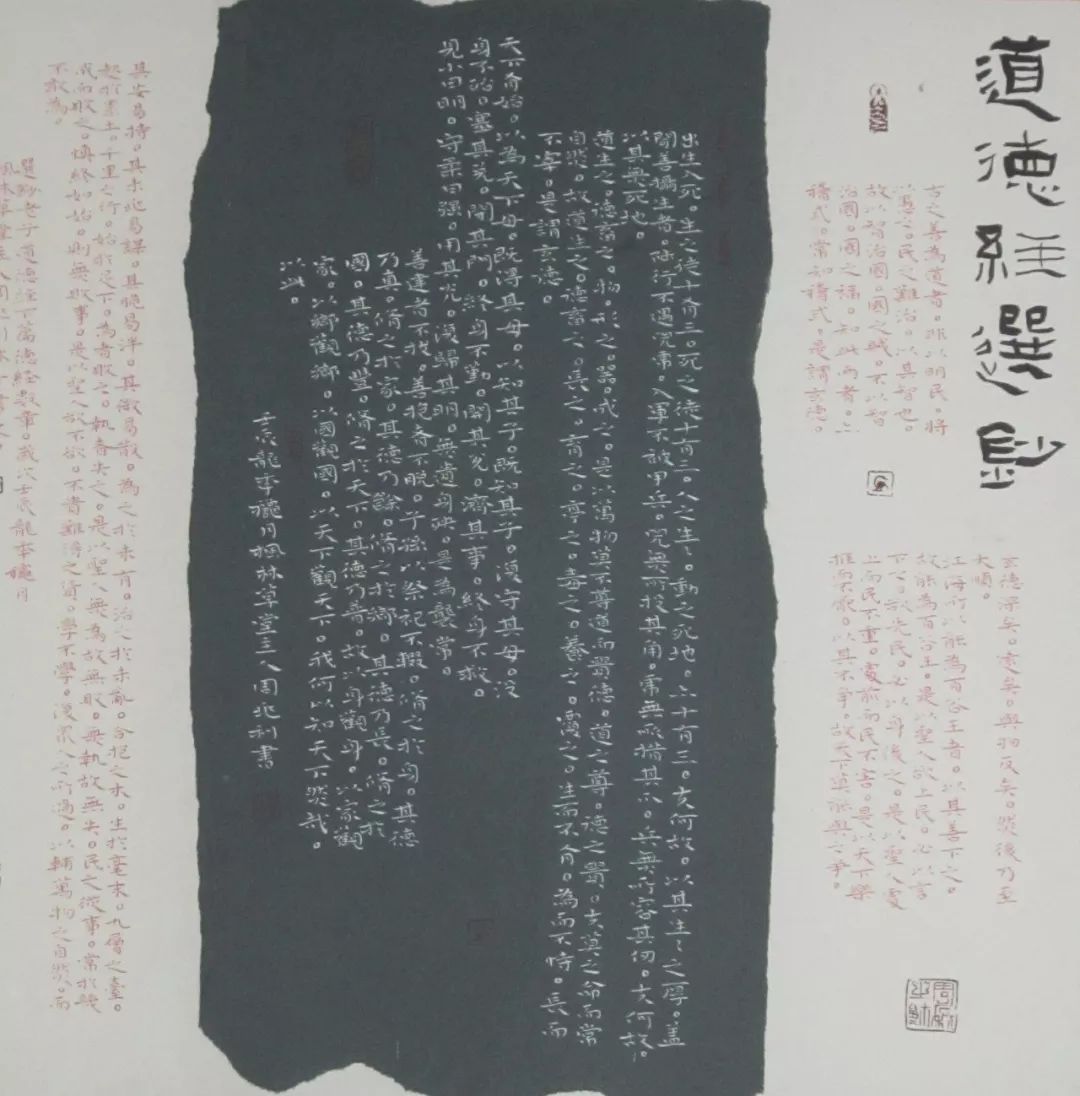 道德經選鈔
古之善為道者。非以明民。將
以愚之。民之難治。以其智也。
故以智治國。國之賊。不以智
治國。國之福。知此兩者。亦
稽式。常知稽式。是謂玄德。
玄德深矣。遠矣。與物反矣。然後乃至
大順。
江海所以能為百谷王者。以其善下之。
故能為百谷王。是以聖人欲上民。必以言
下之。欲先民。必以身後之。是以聖人處
上而民不重。處前而民不害。是以天下樂
推而不厭。以其不爭。故天下莫能與之爭。
出生入死。生之徒十有三。死之徒十有三。人之生。動之死地。亦十有三。夫何故。以其生生之厚。蓋
聞善攝生者。陸行不遇兕虎。入軍不被甲兵。兕無所投其角。虎無所措其爪。兵無所容其刃。夫何故。
以其無死地。
道生之。德畜之。物形之。器成之。是以萬物莫不尊道而貴德。道之尊。德之貴。夫莫之命而常
自然。故道生之。德畜之。長之。育之。亭之。毒之。養之。覆之。生而不有。為而不恃。長而
不宰。是謂玄德。
天下有始。以為天下母。既得其母。以知其子。既知其子。復守其母。沒
身不殆。塞其兌。閉其門。終身不勤。開其兌。濟其事。終身不救。
見小曰明。守柔曰強。用其光。復歸其明。無遺身殃。是為襲常。
善建者不拔。善抱者不脫。子孫以祭祀不輟。脩之於身。其德
乃真。脩之於家。其德乃餘。脩之於鄉。其德乃長。脩之於
國。其德乃豐。脩之於天下。其德乃普。故以身觀身。以家觀
家。以鄉觀鄉。以國觀國。以天下觀天下。我何以知天下然哉。
以此。
壬辰龍年穐月楓林草堂主人周兆利書
其安易持。其未兆易謀。其脆易泮。其微易散。為之於未有。治之於未亂。合抱之木。生於毫末。九層之臺。
起於累土。千里之行。始於足下。為者敗之。執者失之。是以聖人無為故無敗。無執故無失。民之從事。常於幾
成而敗之。慎終如始。則無敗事。是以聖人欲不欲。不貴難得之貨。學不學。復眾人之所過。以輔萬物之自然。而
不敢為。
選鈔老子道德經下篇德經數章。歲次壬辰龍年穐月